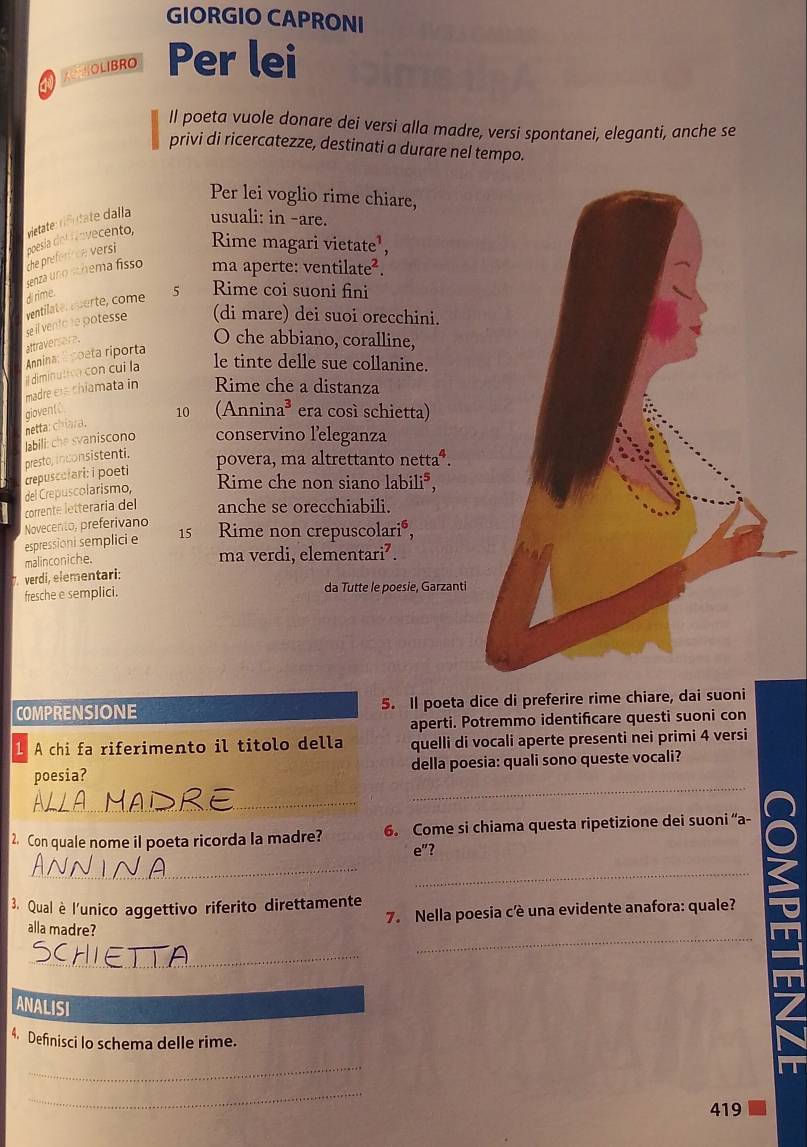 GIORGIO CAPRONI
OLIBRO
Per lei
Il poeta vuole donare dei versi alla madre, versi spontanei, eleganti, anche se
privi di ricercatezze, destinati a durare nel tempo.
Per lei voglio rime chiare,
usuali: in -are.
Rime magari vietate¹,
ma aperte: ventilate².
5 Rime coi suoni fini
(di mare) dei suoi orecchini.
O che abbiano, coralline,
le tinte delle sue collanine.
Rime che a distanza
10 (Annina³ era così schietta)
conservino l'eleganza
povera, ma altrettanto netta⁴.
Rime che non siano labili⁵,
anche se orecchiabili.
15 Rime non crepuscolari⁶,
ma verdi, elementari⁷.
da Tutte le poesie, Garzanti
vietate: dalla
poesia
che versi
senza uno schema fisso
di rime.
ventilate: aperte, come
se il vento le potesse
attraversare.
Annina: poeta riporta
il diminutivo con cui la
madre era chiamata in
gioventù.
netta: chiara.
labili: che svaniscono
presto, inconsistenti.
crepuscolari: i poeti
del Crepuscolarismo,
corrente letteraria del
Novecento, preferivano
espressioni semplici e
malinconiche.
7. verdi, elementari:
fresche e semplici.
COMPRENSIONE
1. A chi fa riferimento il titolo della
poesia?
ALLA MADRE
2. Con quale nome il poeta ricorda la madre?
ANNINA
3. Qual è l'unico aggettivo riferito direttamente
alla madre?
SCHIETTA
ANALISI
4. Definisci lo schema delle rime.
5. Il poeta dice di preferire rime chiare, dai suoni
aperti. Potremmo identificare questi suoni con
quelli di vocali aperte presenti nei primi 4 versi
della poesia: quali sono queste vocali?
6. Come si chiama questa ripetizione dei suoni "a-
e"?
7. Nella poesia c'è una evidente anafora: quale?
COMPETENZE
419